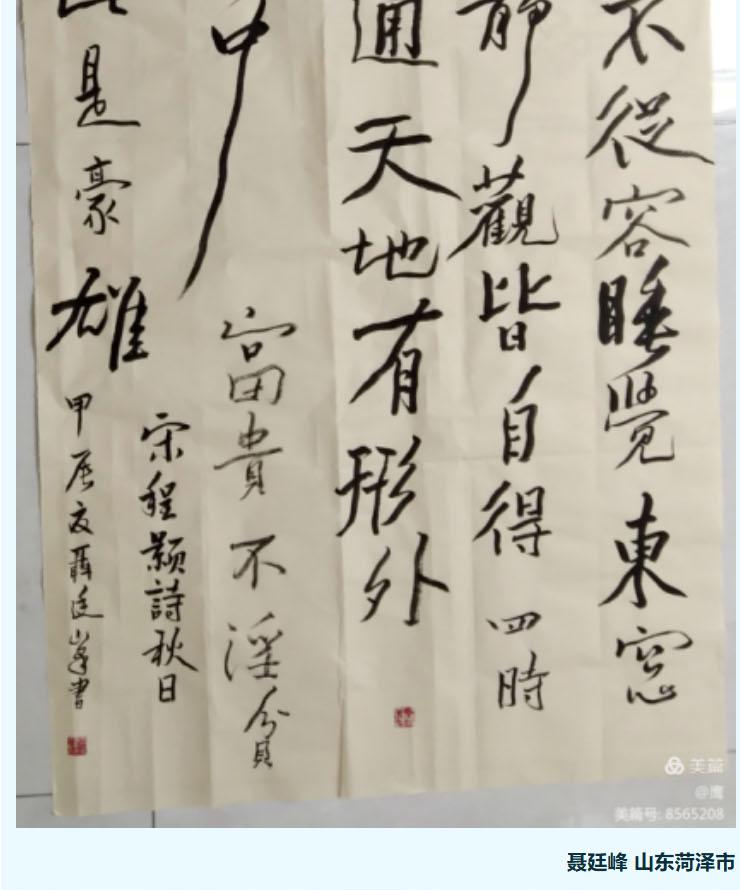 不從容睡覺東窓
靜觀皆自得四時
通天地有形外
中富貴不淫貧
此是豪雄
宋程顥詩秋日
甲辰夏聶廷峯書
美篇
@鹰
美篇号: 8565208
聂廷峰 山东菏泽市